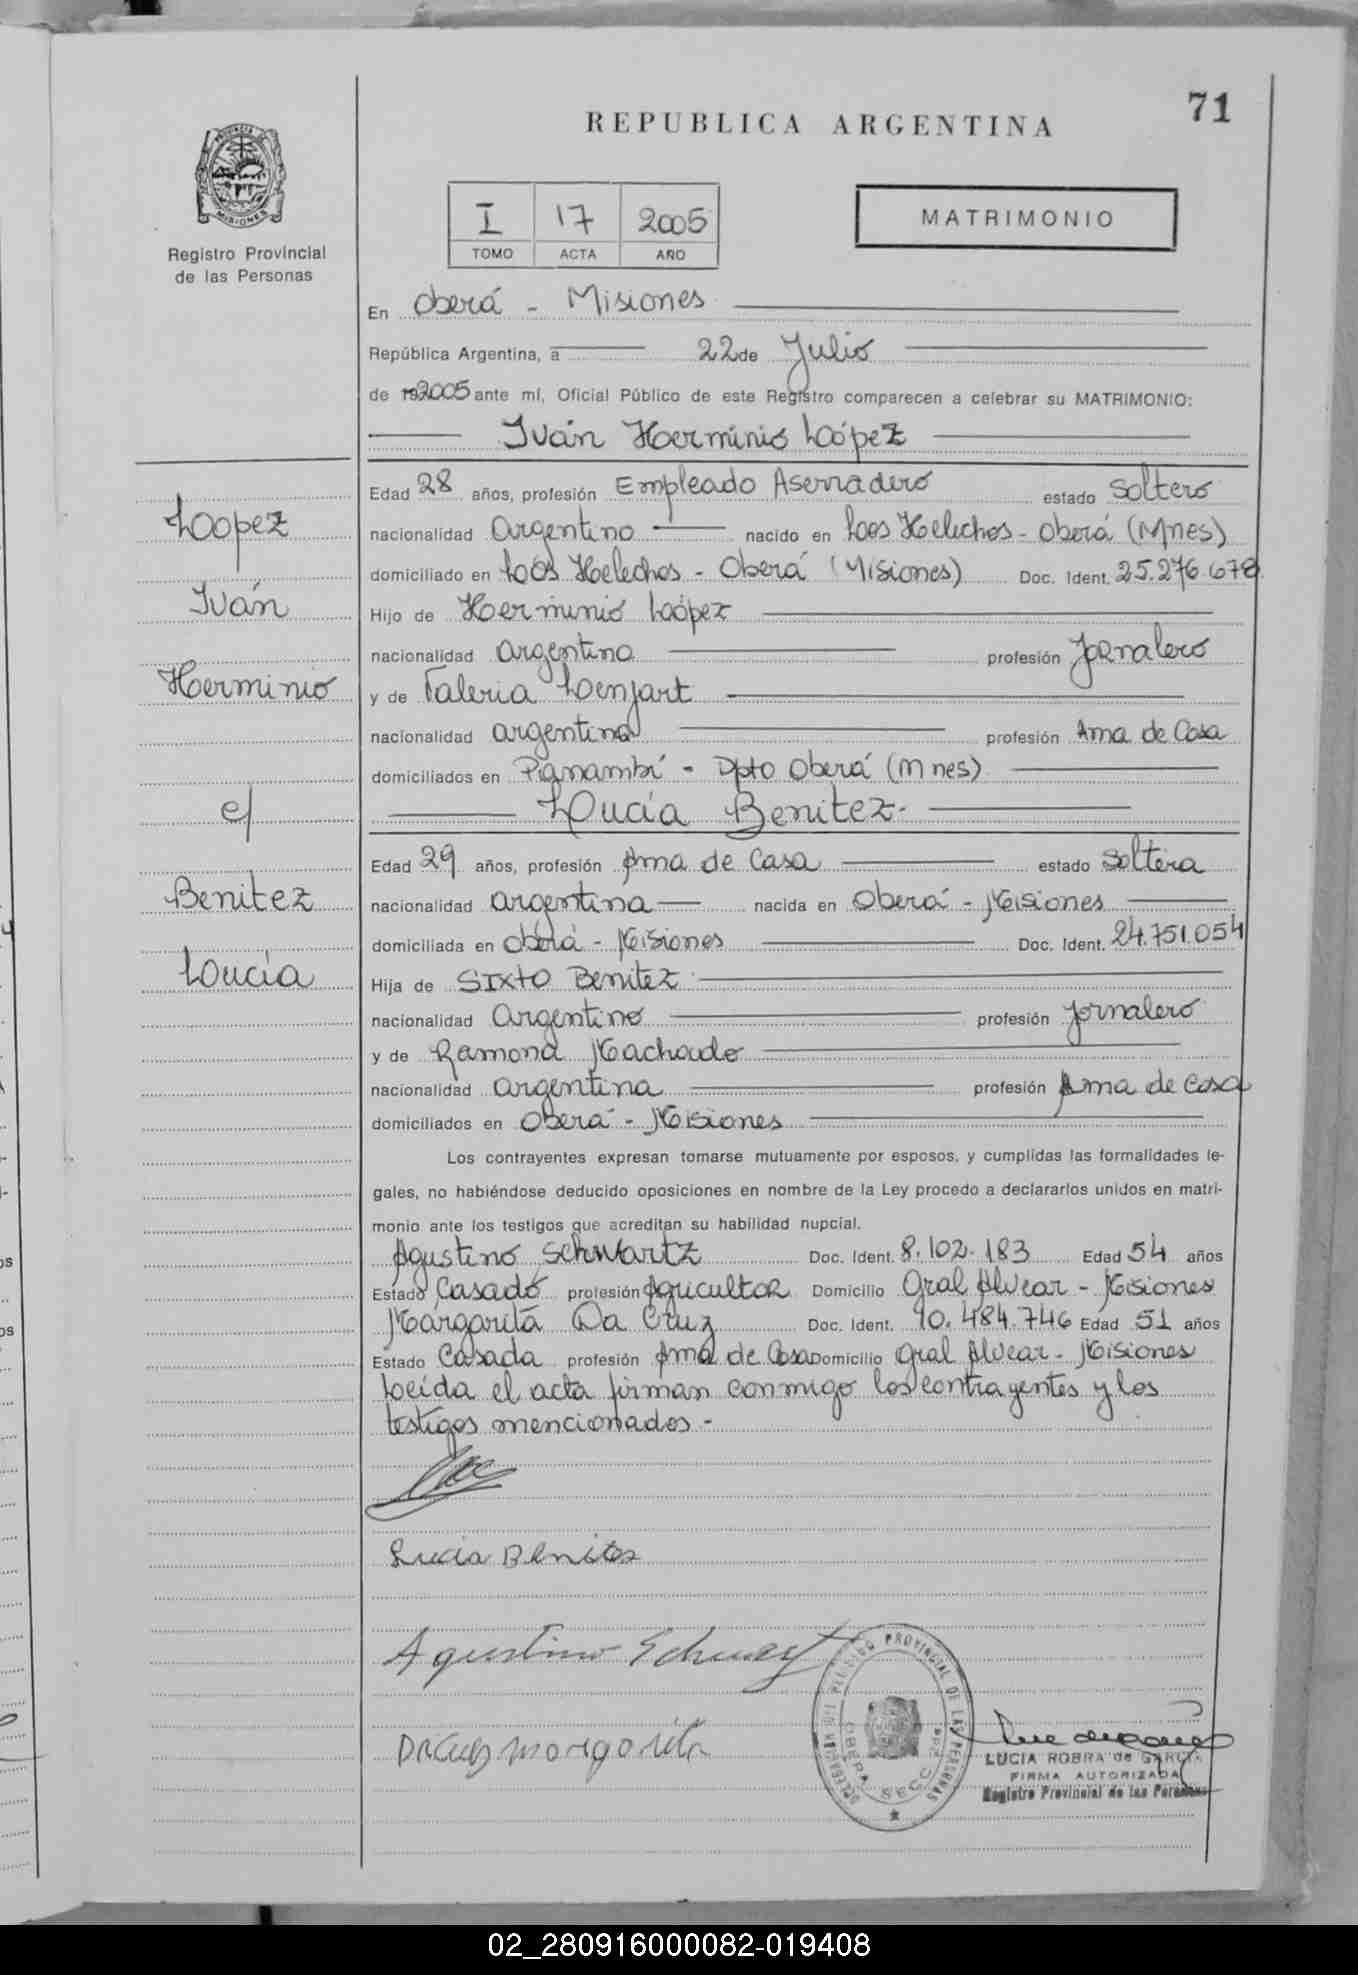 71
REPUBLICA ARGENTINA
PROVINCIA DE
MISIONES
Registro Provincial
de las Personas
I 17 2005
TOMO ACTA AÑO
MATRIMONIO
En Oberá - Misiones
República Argentina, a 22 de Julio
de 192005 ante mí, Oficial Público de este Registro comparecen a celebrar su MATRIMONIO:
Iván Herminio López
Edad 28 años, profesión Empleado Aserradero estado Soltero
nacionalidad argentino nacido en Los Helechos - Oberá (Mnes)
domiciliado en Los Helechos - Oberá (Misiones) Doc. Ident. 25.276.678
Hijo de Herminio López
nacionalidad argentina profesión Jornalero
y de Valeria Lenjart
nacionalidad argentina profesión Ama de Casa
domiciliados en Panambí - Dpto Oberá (Mnes)
Lucia Benitez.-
Edad 29 años, profesión Ama de Casa estado Soltera
nacionalidad argentina nacida en Oberá - Misiones
domiciliada en Oberá - Misiones Doc. Ident. 24.751.054
Hija de Sixto Benitez
nacionalidad Argentino profesión Jornalero
y de Ramona Machado
nacionalidad argentina profesión Ama de Casa
domiciliados en Oberá - Misiones
Los contrayentes expresan tomarse mutuamente por esposos, y cumplidas las formalidades le-
gales, no habiéndose deducido oposiciones en nombre de la Ley procedo a declararlos unidos en matri-
monio ante los testigos que acreditan su habilidad nupcial.
Agustino Schwartz Doc. Ident. 8.102.183 Edad 54 años
Estado Casado profesión Agricultor Domicilio Gral Alvear - Misiones
Margarita Da Cruz Doc. Ident. 10.484.746 Edad 51 años
Estado Casada profesión Ama de Casa Domicilio Gral Alvear - Misiones
Leída el acta firman conmigo los contrayentes y los
testigos mencionados.-
Lopez
Iván
Herminio
c/
Benitez
Lucía
Lucia Benites
Agustino
Da Cruz Margarita
PROVINCIAL DE LAS PERSONAS
OBERA SECC. 2da.
LUCIA ROBRA de GARCIA
FIRMA AUTORIZADA
Registro Provincial de las Personas
02_280916000082-019408